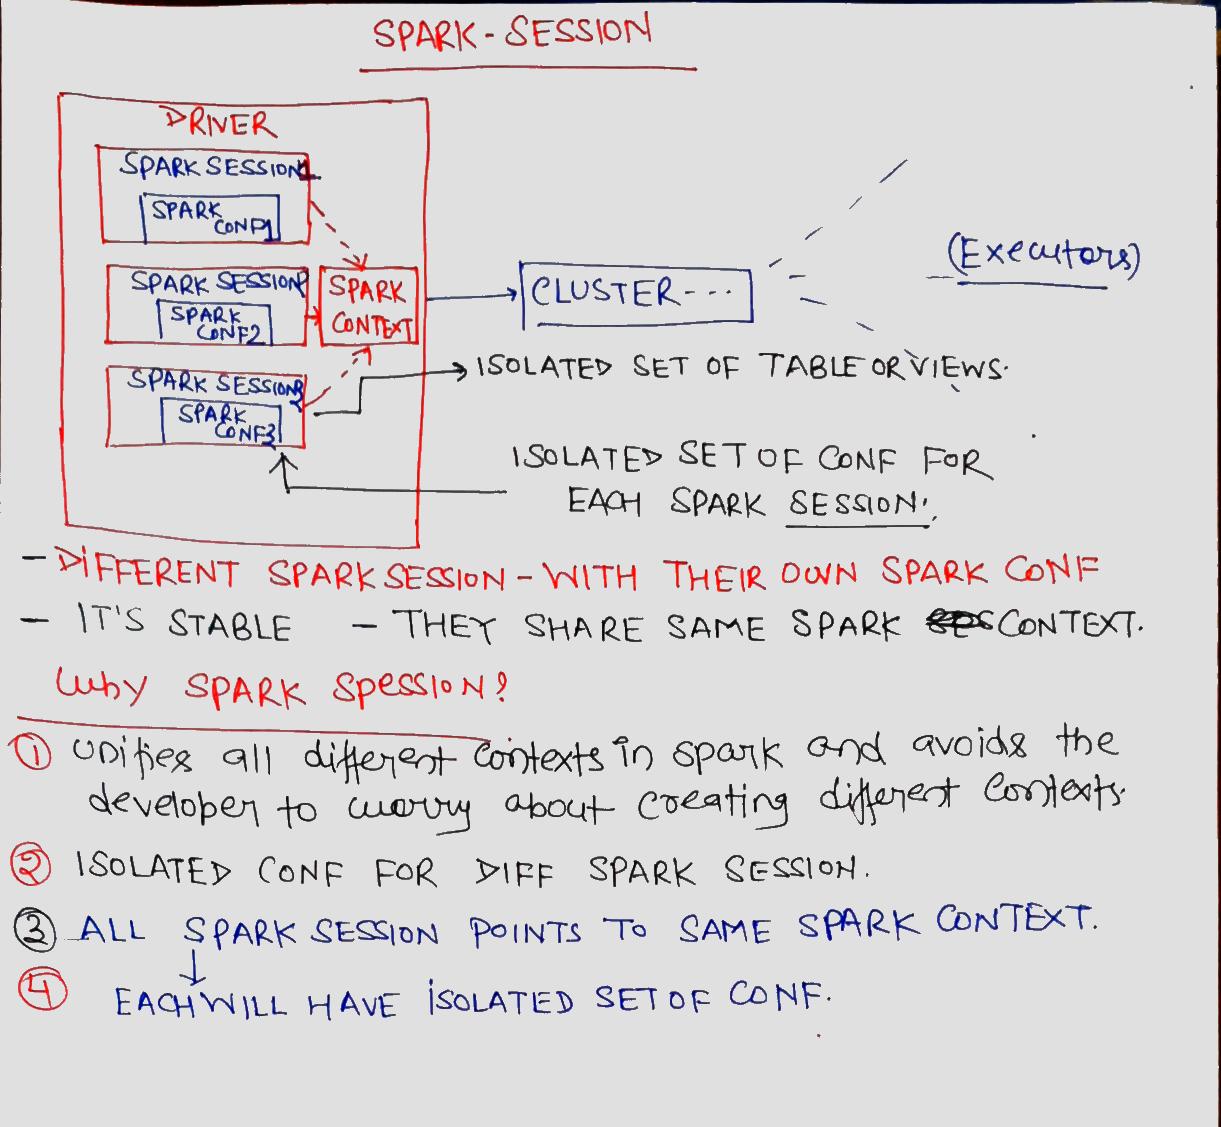 SPARK - SESSION
DRIVER
SPARK SESSION1
SPARK
CONF1
SPARK SESSION2
SPARK
CONF2
SPARK SESSION3
SPARK
CONF3
SPARK
CONTEXT
CLUSTER - - -
(Executors)
ISOLATED SET OF TABLE OR VIEWS.
ISOLATED SET OF CONF FOR
EACH SPARK SESSION.
- DIFFERENT SPARK SESSION - WITH THEIR OWN SPARK CONF
- IT'S STABLE - THEY SHARE SAME SPARK CONTEXT.
Why SPARK SPESSION?
① Unifies all different contexts in spark and avoids the
developer to worry about creating different contexts.
② ISOLATED CONF FOR DIFF SPARK SESSION.
③ ALL SPARK SESSION POINTS TO SAME SPARK CONTEXT.
④ EACH WILL HAVE ISOLATED SET OF CONF.